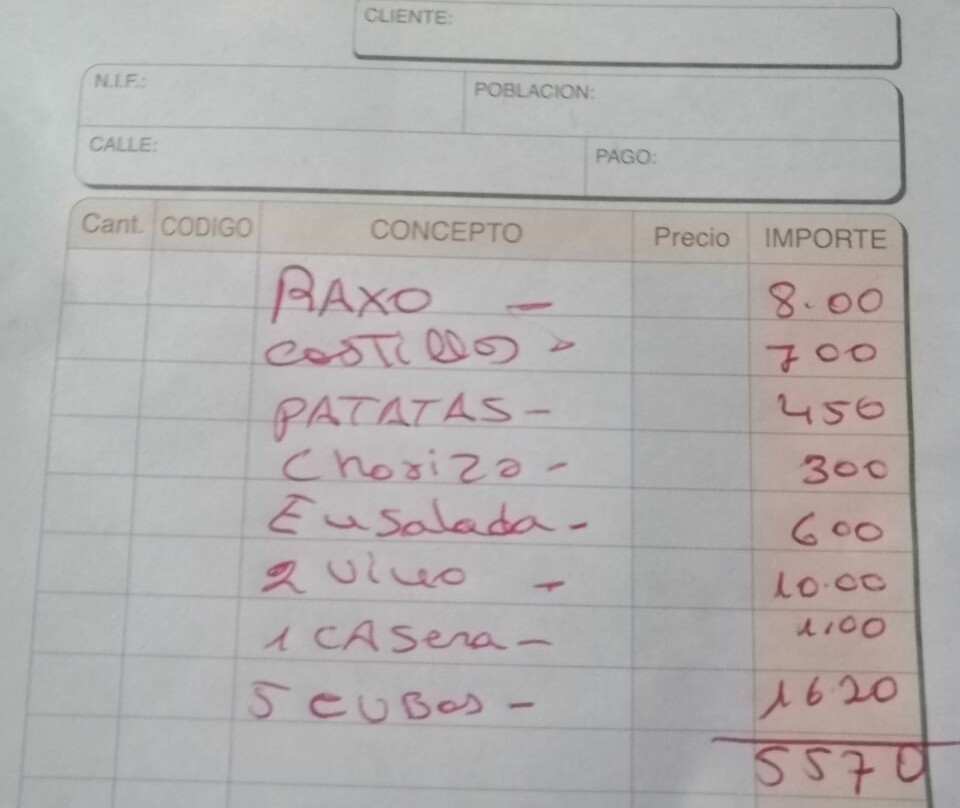 CLIENTE:
N.I.F.: POBLACION:
CALLE: PAGO:
Cant. CODIGO CONCEPTO Precio IMPORTE
RAXO — 8.00
COSTILLAS - 700
PATATAS - 450
Chorizo - 300
Ensalada - 600
2 Vino - 10.00
1 CASera - 1.00
5 CUBAS - 16.20
5570